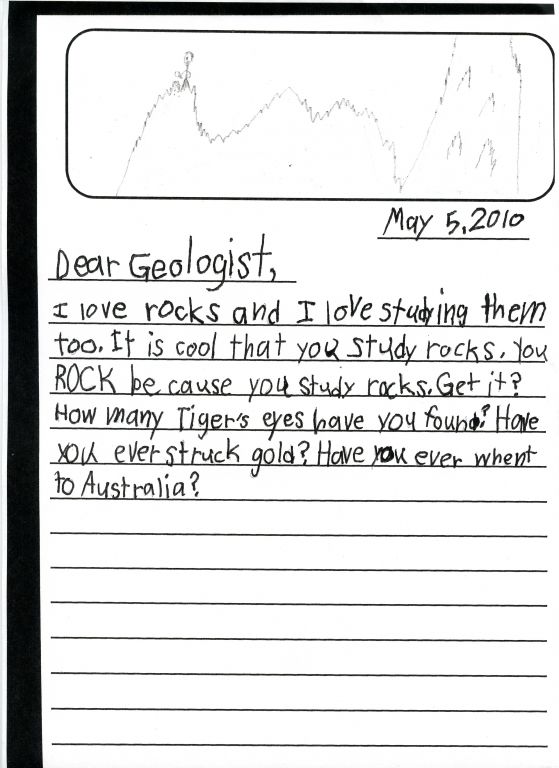 May 5, 2010
Dear Geologist,
I love rocks and I love studying them
too. It is cool that you study rocks. You
ROCK be cause you study rocks. Get it?
How many Tiger's eyes have you found? Have
you ever struck gold? Have you ever whent
to Australia?